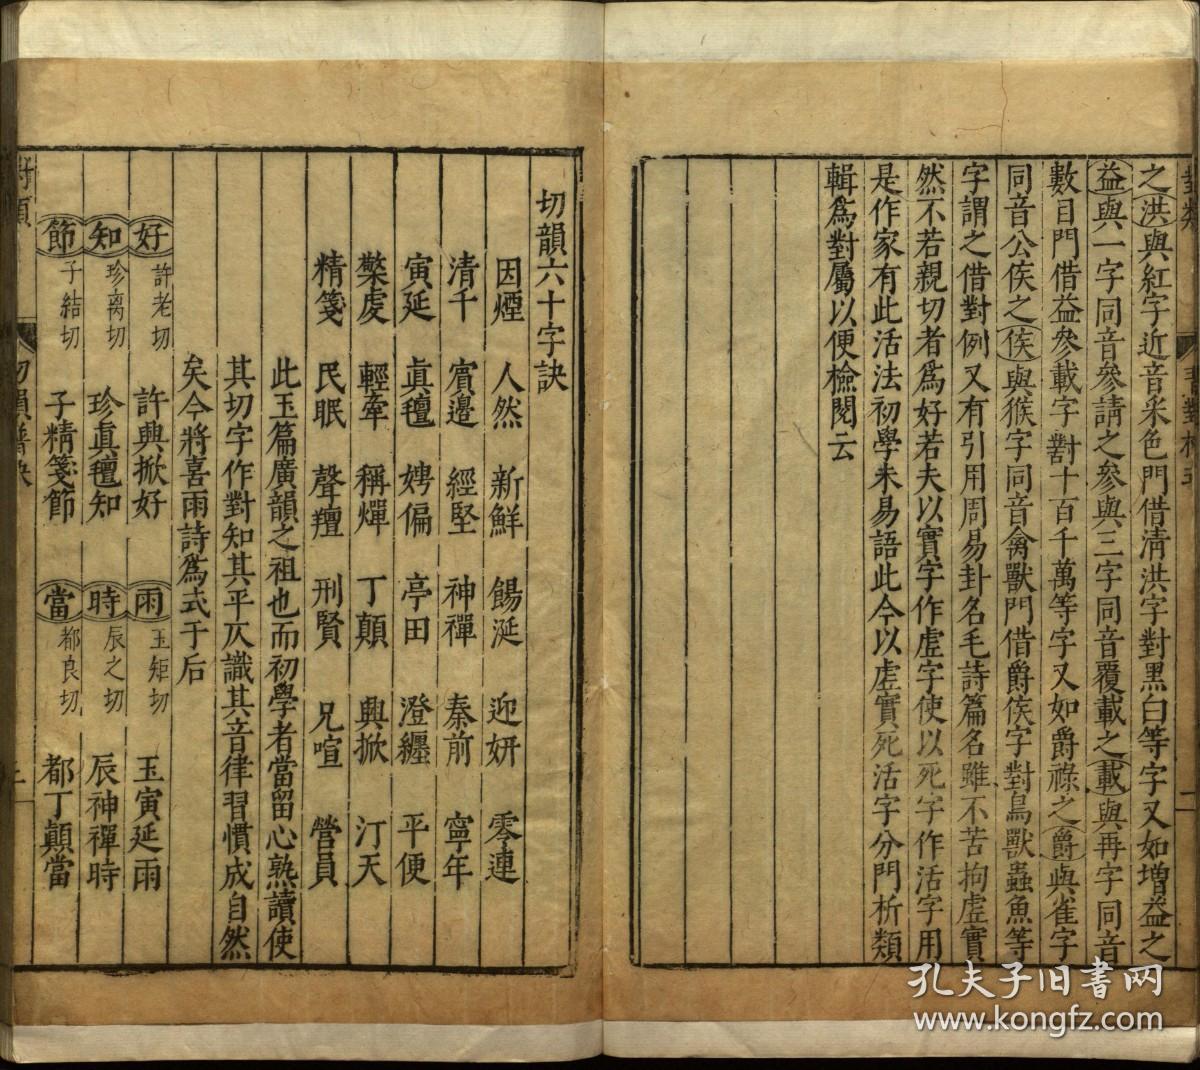 之洪與紅字近音采色門借清洪字對黑白等字又如增益之
益與一字同音參請之參與三字同音覆載之載與再字同音
數目門借益參載字對十百千萬等字又如爵祿之爵與雀字
同音公侯之侯與猴字同音禽獸門借爵侯字對鳥獸蟲魚等
字謂之借對例又有引用周易卦名毛詩篇名雖不苦拘虛實
然不若親切者爲好若夫以實字作虛字使以死字作活字用
是作家有此活法初學未易語此今以虛實死活字分門析類
輯爲對屬以便檢閱云
切韻六十字訣
因煙 人然 新鮮 餳涎 迎妍 零連
清千 賓邊 經堅 神禪 秦前 寧年
寅延 真氊 娉偏 亭田 澄纏 平便
檠虔 輕牽 稱燀 丁顛 興掀 汀天
精箋 民眠 聲羶 刑賢 兄喧 營員
此玉篇廣韻之祖也而初學者當留心熟讀使
其切字作對知其平仄識其音律習慣成自然
矣今將喜雨詩爲式于后
好 許老切 許興掀好 雨 玉矩切 玉寅延雨
知 珍离切 珍真氊知 時 辰之切 辰神禪時
節 子結切 子精箋節 當 都良切 都丁顛當
對類 切韻
孔夫子旧書网
www.kongfz.com